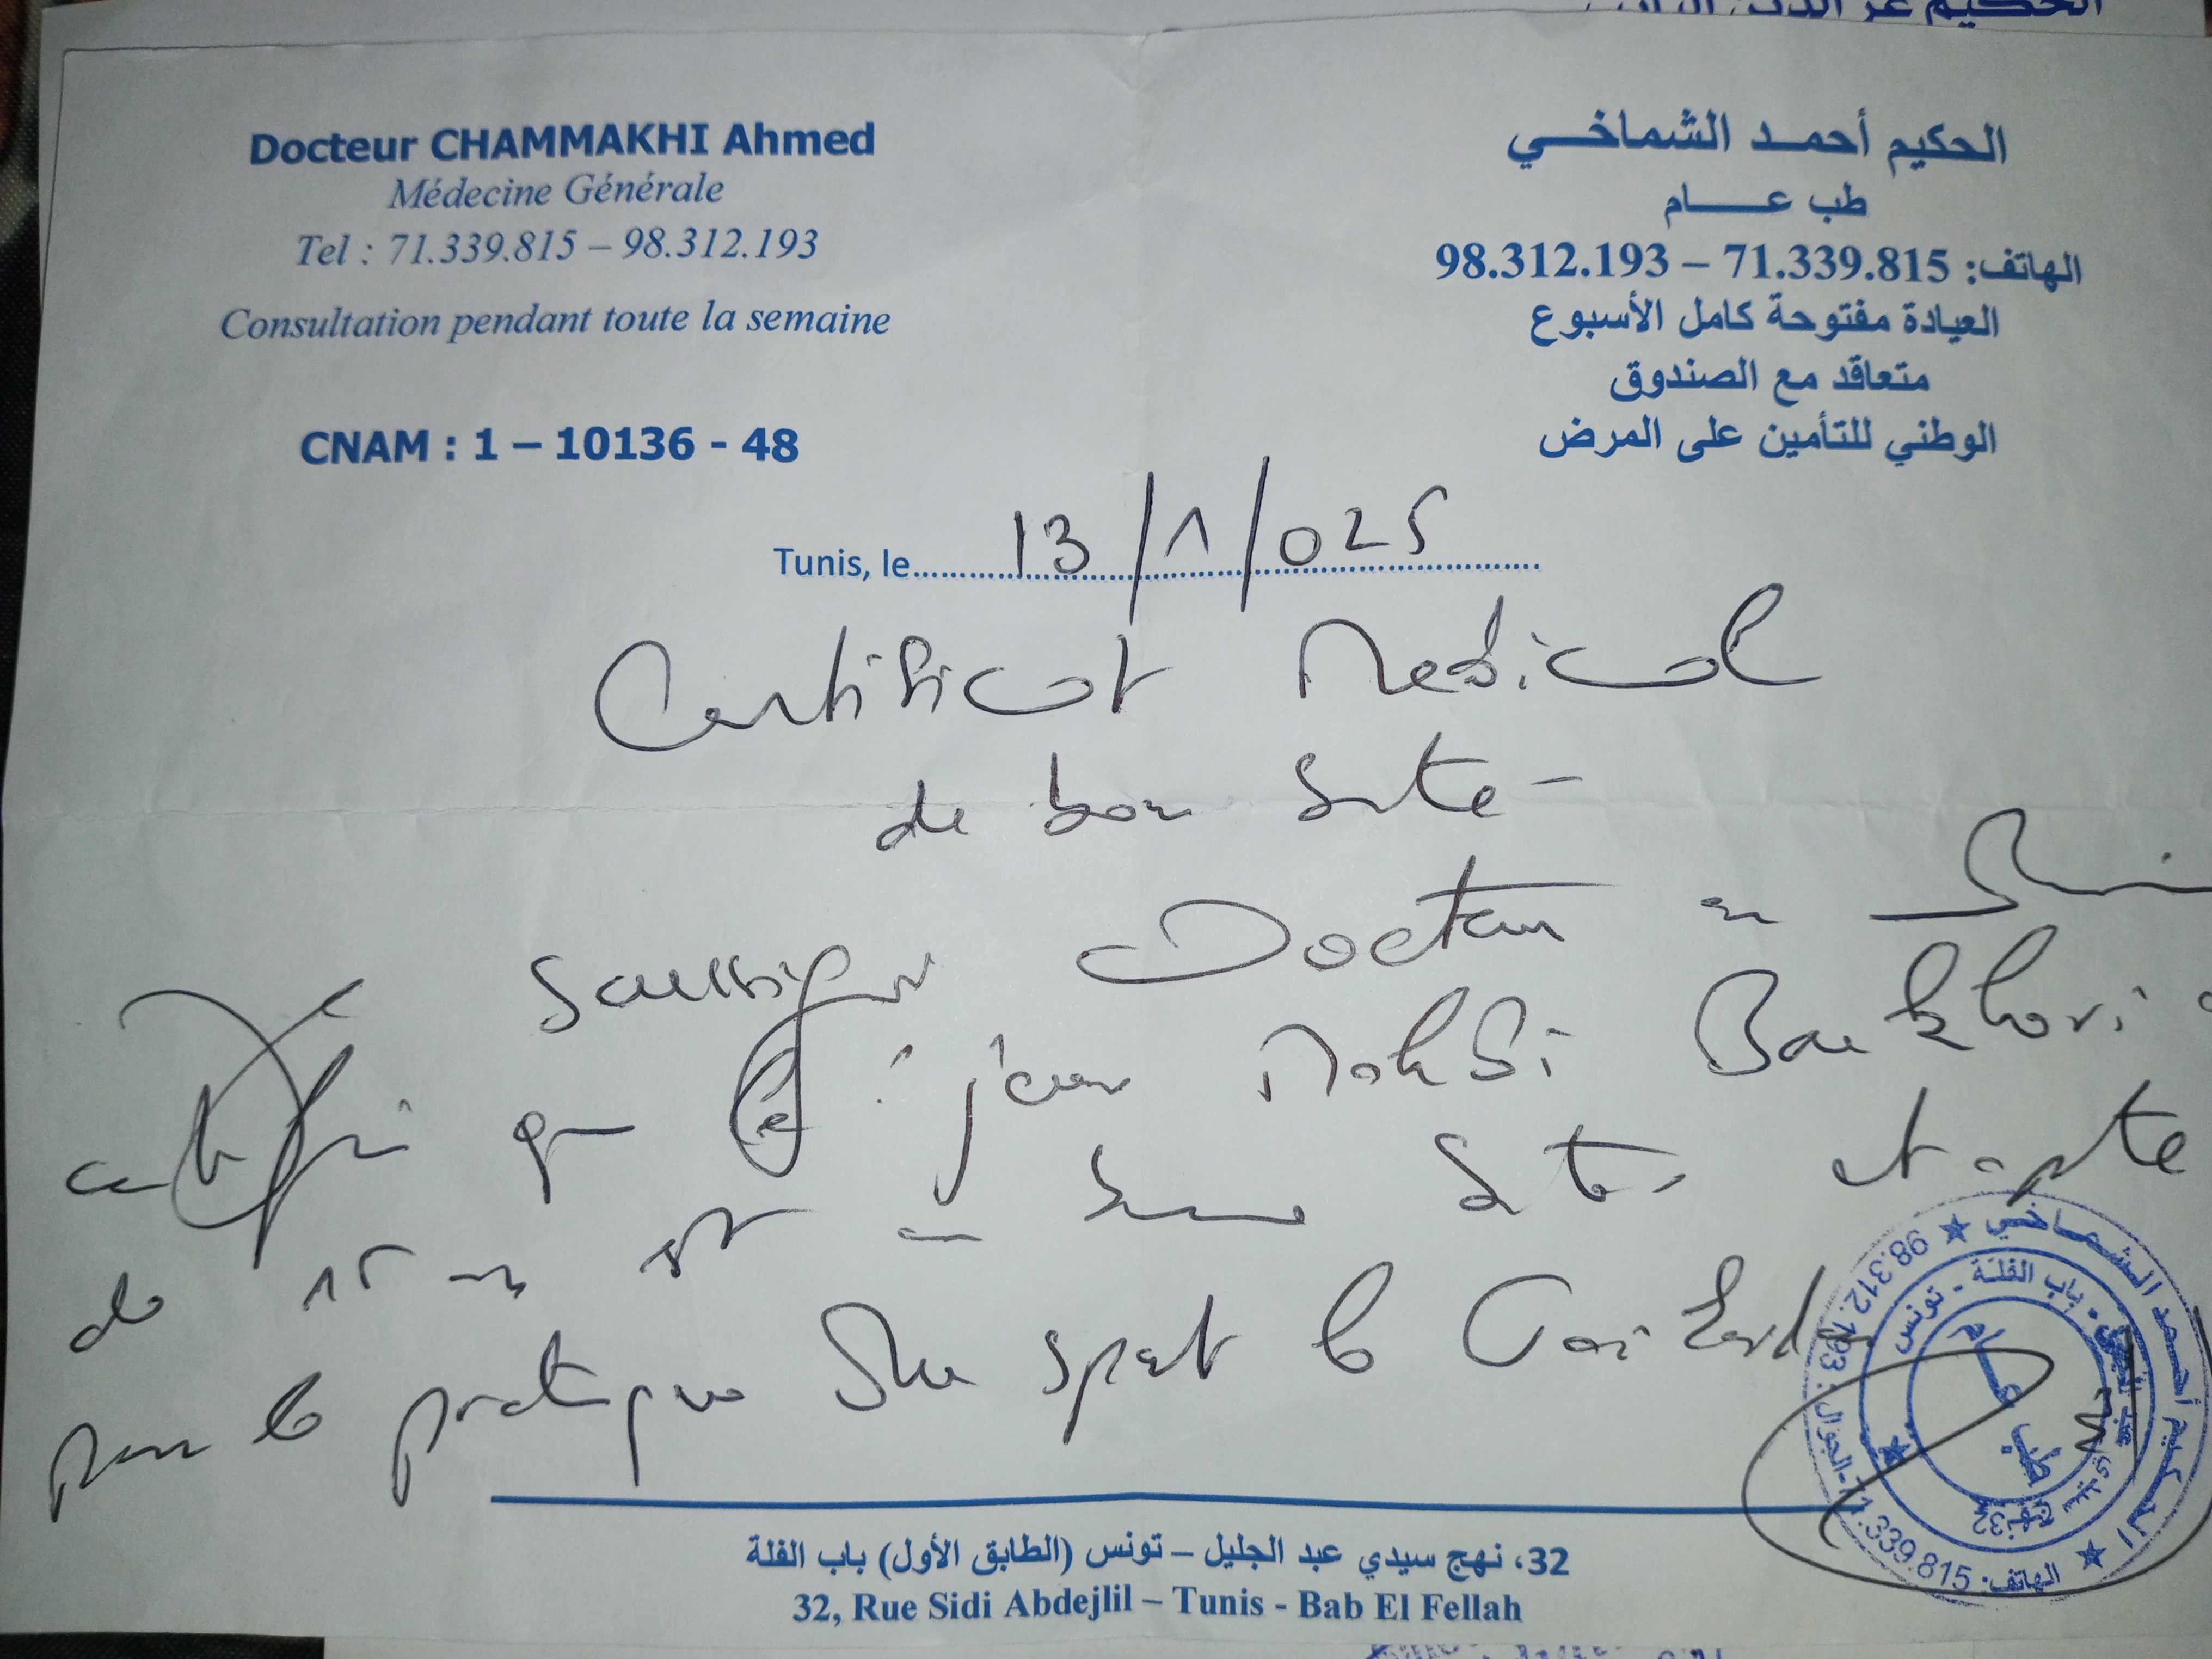 Docteur CHAMMAKHI Ahmed
Médecine Générale
Tel : 71.339.815 – 98.312.193
Consultation pendant toute la semaine
CNAM : 1 – 10136 - 48
الحكيم أحمد الشماخي
طب عام
الهاتف: 71.339.815 – 98.312.193
العيادة مفتوحة كامل الأسبوع
متعاقد مع الصندوق
الوطني للتأمين على المرض
Tunis, le 13/1/025
Certificat Medical
de bon
Docteur en
que le jeune
de 15 est et apte
pour la pratique sport
الحكيم أحمد الشماخي ★ 98.312.193 الجوال: - 71.339.815 الهاتف: ★
باب الفلة - تونس ★
طب عام
32، نهج سيدي عبد الجليل – تونس (الطابق الأول) باب الفلة
32, Rue Sidi Abdejlil – Tunis - Bab El Fellah